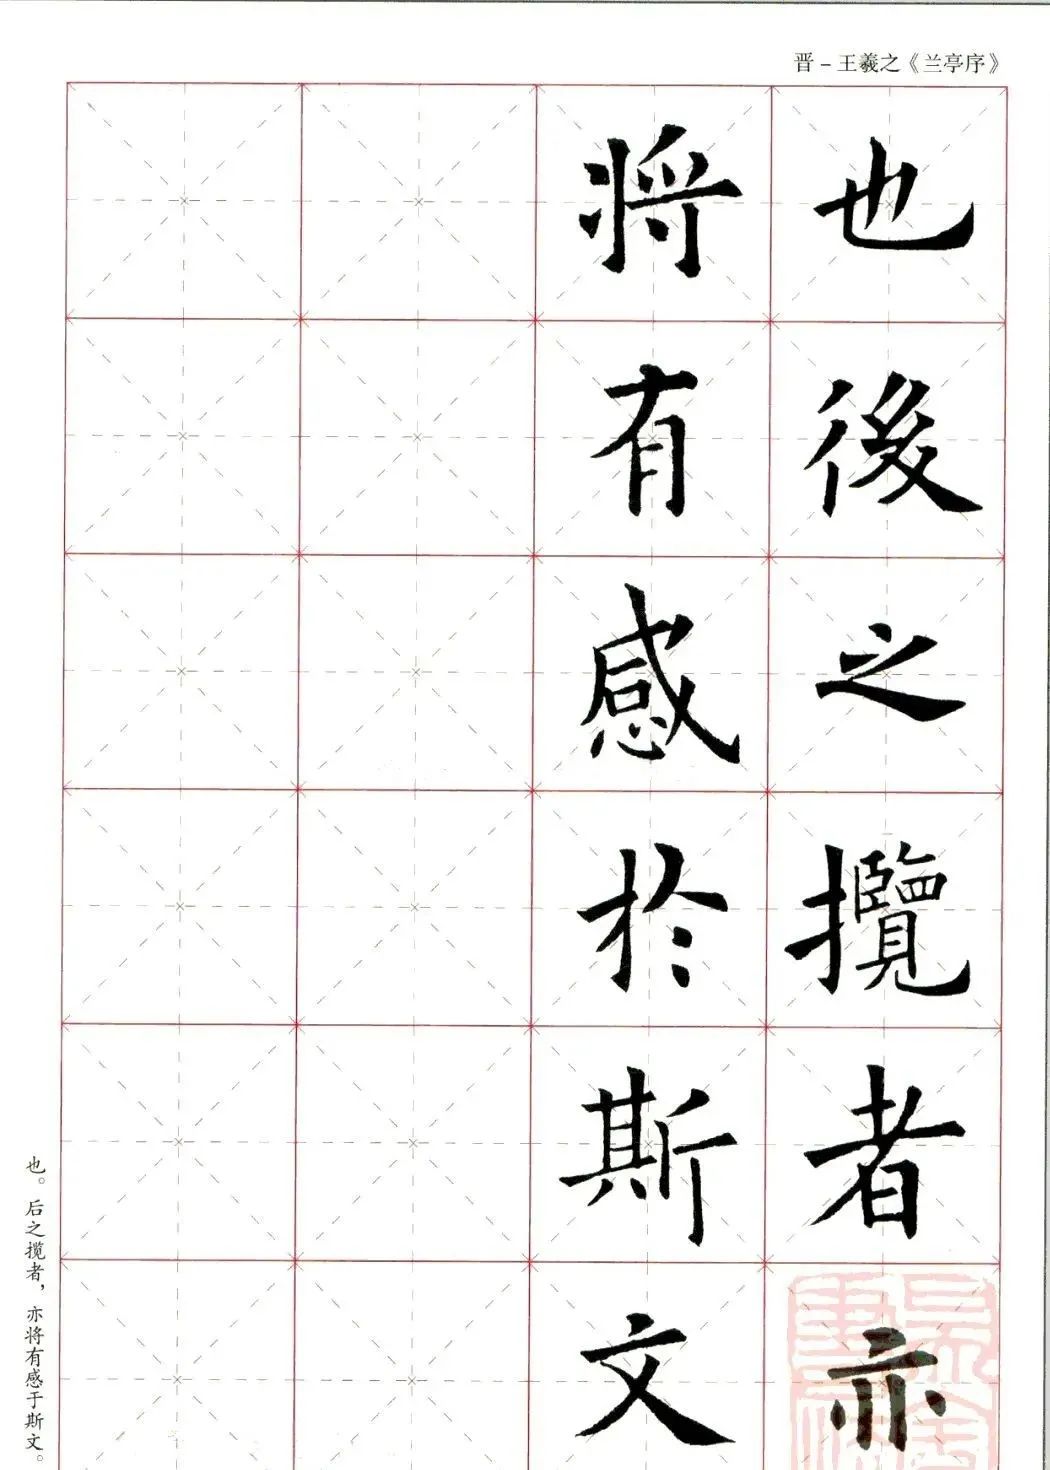 晋－王羲之《兰亭序》
也後之攬者亦
将有感於斯文
也。后之揽者，亦将有感于斯文。